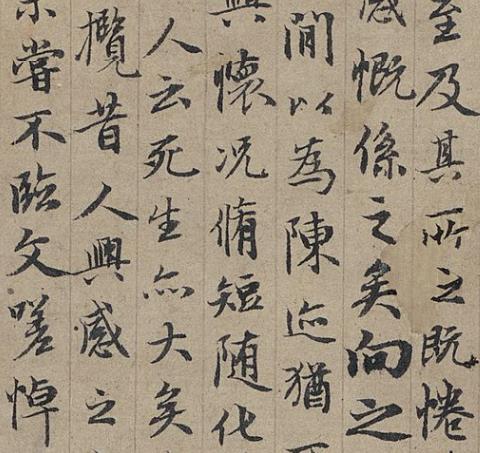 至及其所之既惓
感慨係之矣向之
間以為陳迹猶
興懷况脩短随化
人云死生亦大矣
攬昔人興感之
未嘗不臨文嗟悼